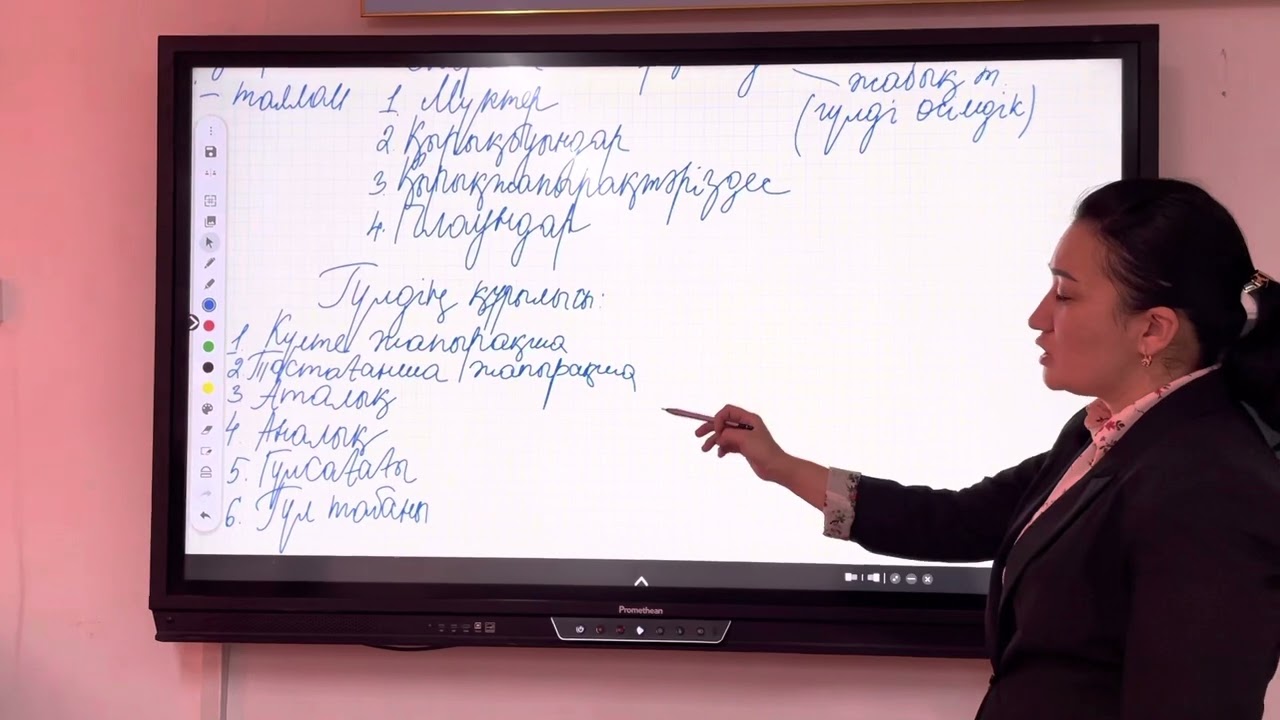 – таллом
1. Мүктер
– жабық т.
(гүлді өсімдік)
2. Қырықбуындар
3. Қырықжапырақтәріздес
4. Плаундар
Гүлдің құрылысы:
1. Күлте жапырақша
2. Тостағанша жапырақша
3 Аталық
4. Аналық
5. Гүлсағағы
6. Гүл табаны
Promethean